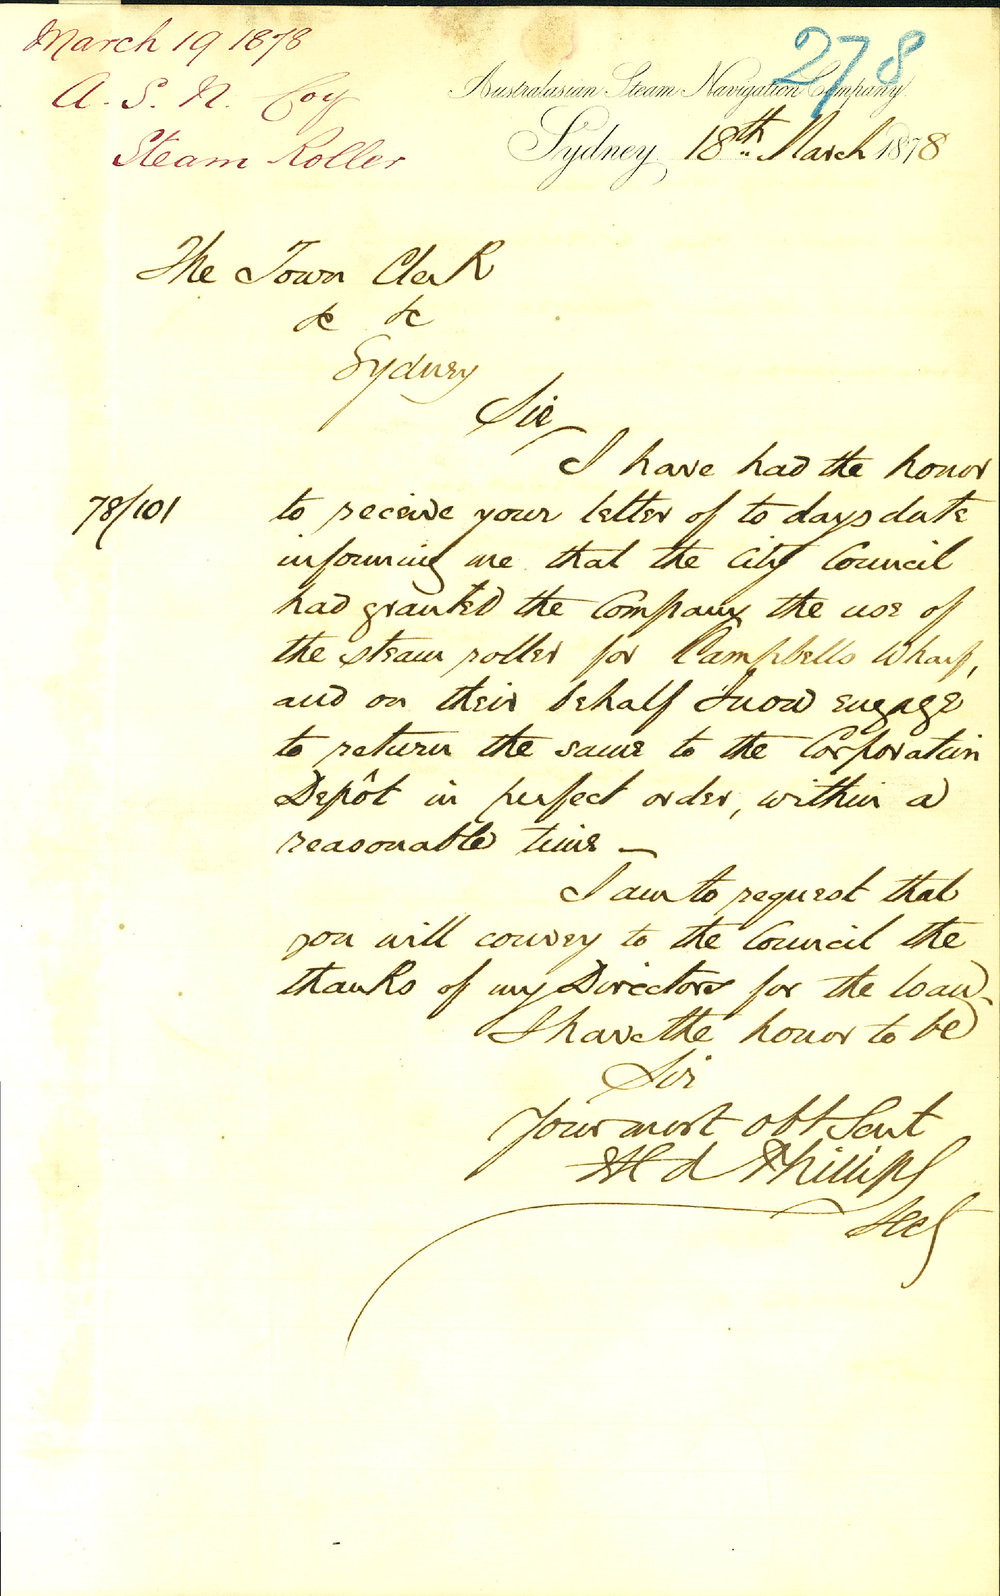 March 19 1878
A. S. N. Coy
Steam Roller
278
Australasian Steam Navigation Company
Sydney 18th March 1878
The Town Clerk
&c &c
Sydney
Sir
I have had the honor
78/101
to receive your letter of to days date
informing me that the City Council
had granted the Company the use of
the steam roller for Campbells Wharf,
and on their behalf I now engage
to return the same to the Corporation
Depôt in perfect order, within a
reasonable time —
I am to request that
you will convey to the Council the
thanks of my Directors for the loan.
I have the honor to be
Sir
Your most obt Servt
Phillips
Secy